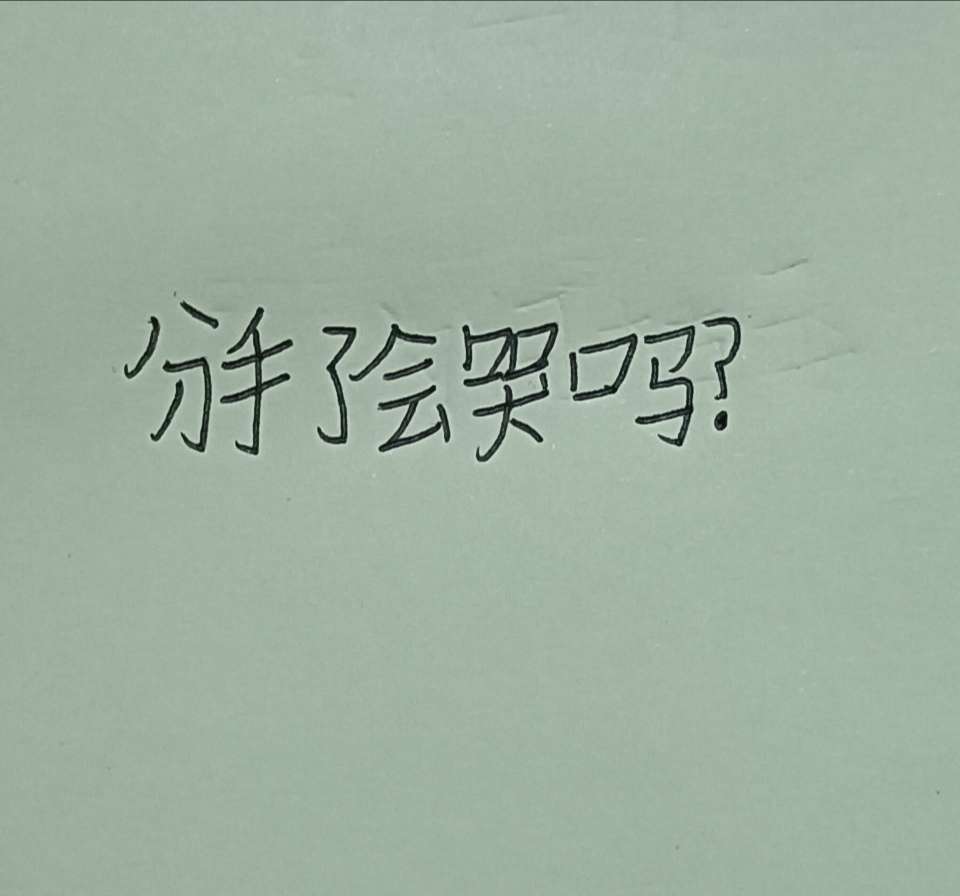 分手了会哭吗?